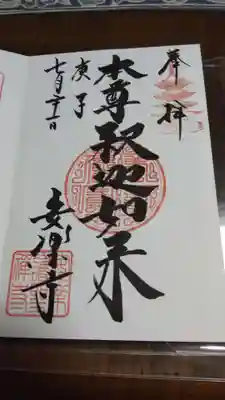 奉拝
本尊釈迦如来
庚子
七月二十一日
安楽寺